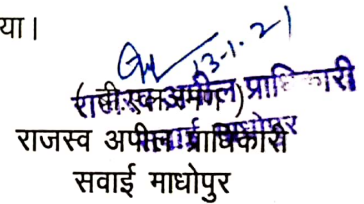 या।
13-1-21
राजस्व अपील प्राधिकारी
राजस्व अपील प्राधिकारी
सवाई माधोपुर